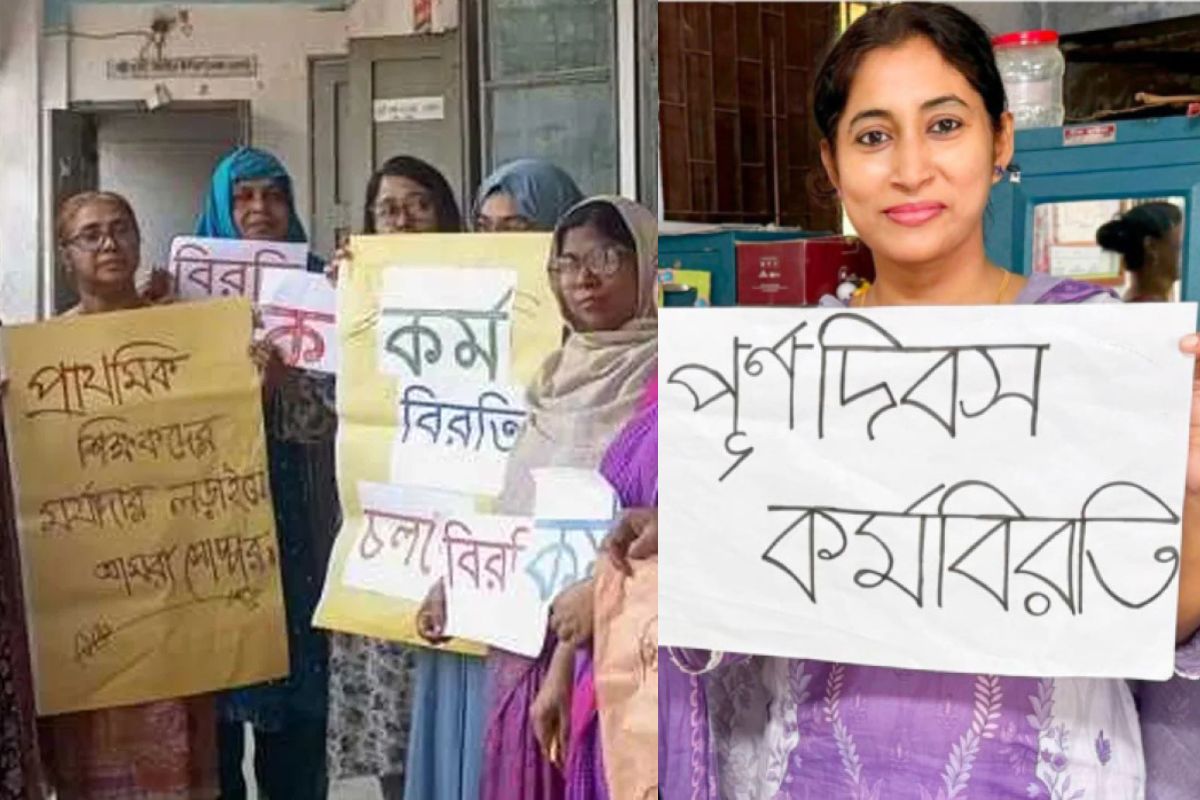 প্রাথমিক
শিক্ষকদের
মর্যাদার লড়াইয়ে
আমরা
বিরতি
ক
কর্ম
বিরতি
চলা
বির
কর্ম
পূর্ণদিবস
কর্মবিরতি